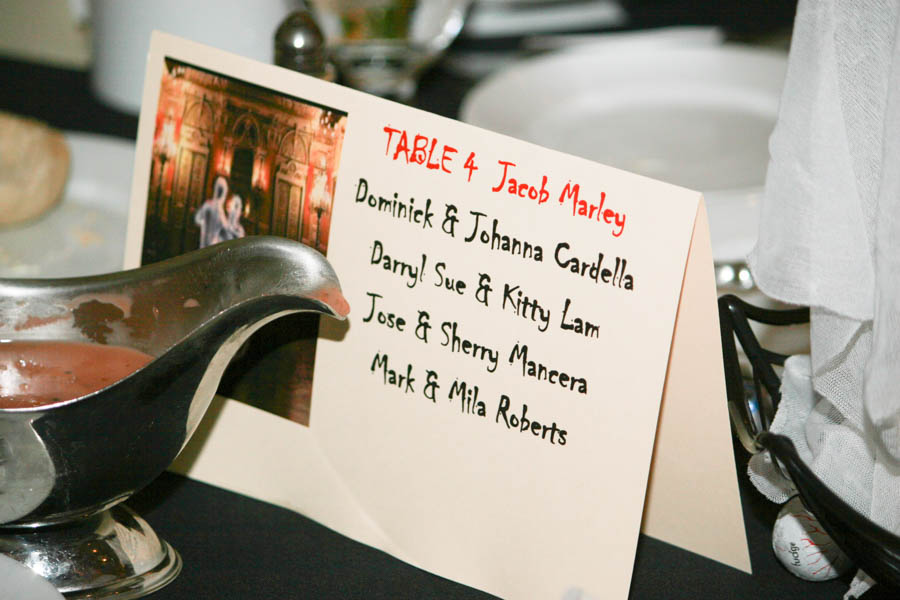 TABLE 4 Jacob Marley
Dominick & Johanna Cardella
Darryl Sue & Kitty Lam
Jose & Sherry Mancera
Mark & Mila Roberts
fudge